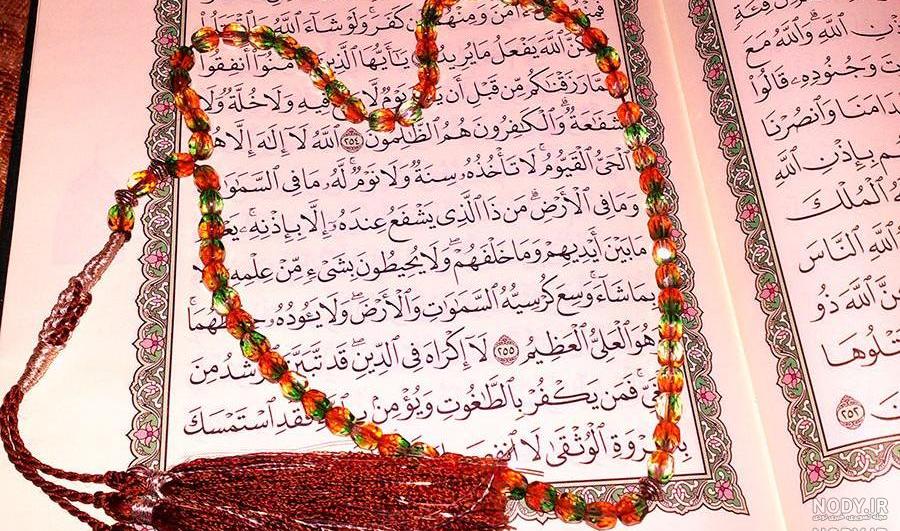 ءَامَنَ وَمِنْهُم كَفَرَ وَلَوْ شَآءَ ٱللَّهُ
ٱللَّهَ يَفْعَلُ مَا يُرِيدُ يَٰٓأَيُّهَا ٱلَّذِينَ ءَامَنُوٓا۟ أَنفِقُوا۟
مِمَّا رَزَقْنَٰكُم مِّن قَبْلِ أَن يَوْمٌ لَّا فِيهِ وَلَا خُلَّةٌ وَلَا
شَفَٰعَةٌ ۗ وَٱلْكَٰفِرُونَ هُمُ ٱلظَّٰلِمُونَ ٢٥٤ ٱللَّهُ لَآ إِلَٰهَ إِلَّا هُوَ
ٱلْحَىُّ ٱلْقَيُّومُ ۚ لَا تَأْخُذُهُۥ سِنَةٌ وَلَا نَوْمٌ ۚ لَّهُۥ مَا فِى ٱلسَّمَٰوَٰتِ
وَمَا فِى ٱلْأَرْضِ ۗ مَن ذَا ٱلَّذِى يَشْفَعُ عِندَهُۥٓ إِلَّا بِإِذْنِهِۦ ۚ يَعْلَمُ
مَا بَيْنَ أَيْدِيهِمْ وَمَا خَلْفَهُمْ ۖ وَلَا يُحِيطُونَ بِشَىْءٍ مِّنْ عِلْمِهِۦٓ إِلَّا
بِمَا شَآءَ ۚ وَسِعَ كُرْسِيُّهُ ٱلسَّمَٰوَٰتِ وَٱلْأَرْضَ ۖ وَلَا يَـُٔودُهُۥ حِفْظُهُمَا ۚ
وَهُوَ ٱلْعَلِىُّ ٱلْعَظِيمُ ٢٥٥ لَآ إِكْرَاهَ فِى ٱلدِّينِ ۖ قَد تَّبَيَّنَ ٱلرُّشْدُ مِنَ
ٱلْغَىِّ ۚ فَمَن يَكْفُرْ بِٱلطَّٰغُوتِ وَيُؤْمِنۢ فَقَدِ ٱسْتَمْسَكَ
بِٱلْعُرْوَةِ ٱلْوُثْقَىٰ لَا ٱنفِصَامَ
فِئَةٍ
ٱللَّهِ ۗ وَٱللَّهُ مَعَ
وَجُنُودِهِۦ قَالُوا۟
أَقْدَامَنَا وَٱنصُرْنَا
بِإِذْنِ ٱللَّهِ
ٱلْمُلْكَ
ٱللَّهِ ٱلنَّاسَ
ٱللَّهَ ذُو
نَتْلُوهَا
٢٥٢
NODY.IR